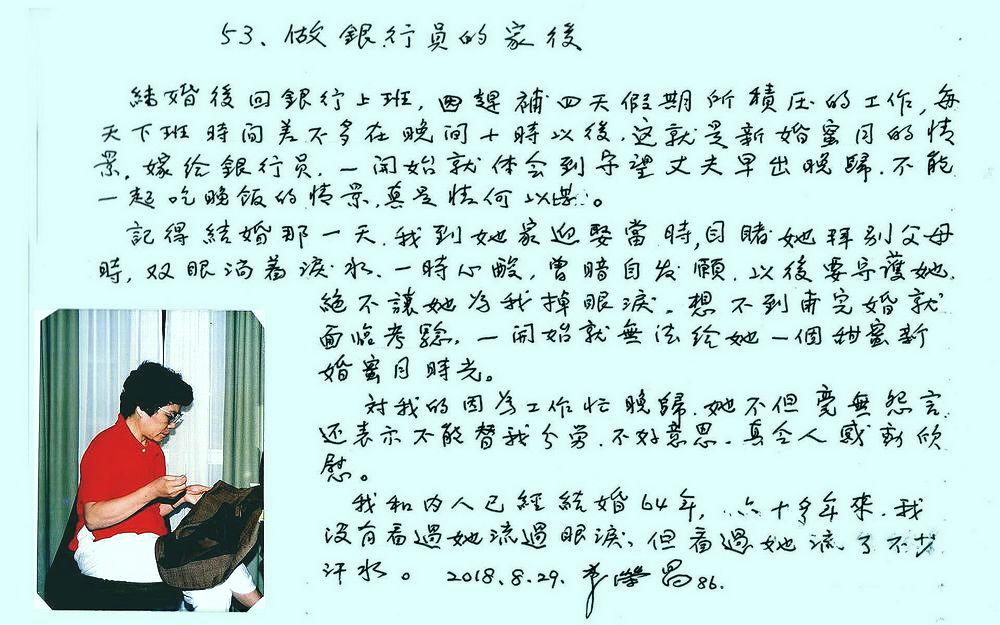 53、做銀行員的家後
結婚後回銀行上班，因趕補四天假期所積压的工作，每
天下班時间差不多在晚间十時以後．这就是新婚蜜月的情
景．嫁给銀行员．一開始就体会到守望丈夫早出晚歸．不能
一起吃晚飯的情景．真是情何以堪。
記得結婚那一天．我到她家迎娶當時，目睹她拜别父母
時，双眼淌着淚水．一時心酸，曾暗自发願．以後要守護她．
絕不讓她為我掉眼淚。想不到甫完婚就
面臨考驗．一開始就無法给她一個甜蜜新
婚蜜月時光。
对我的因為工作忙晚歸．她不但毫無怨言．
还表示不能替我分劳．不好意思．真令人感動欣
慰。
我和内人已經結婚64年，六十多年來．我
沒有看過她流過眼淚、但看過她流了不少
汗水。 2018.8.29. 李 昌86.